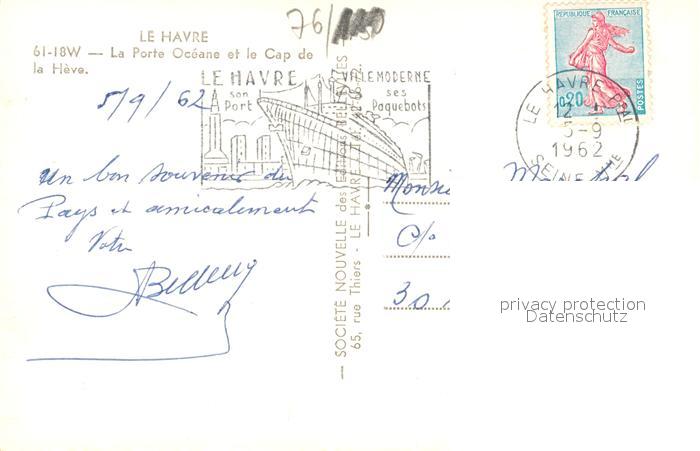 76/
LE HAVRE
61-18W — La Porte Océane et le Cap de
la Hève.
5/9/62
LE HAVRE
son
Port
VILLE MODERNE
ses
Paquebots
REPUBLIQUE FRANÇAISE
0,20
POSTES
LE HAVRE PPAL
5-9
1962
SEINE MME
Un bon souvenir du
Pays et amicalement
Votre
Monsi
C/o
30
— SOCIÉTÉ NOUVELLE des Éditions
65, rue Thiers - LE HAVRE - Tél.
privacy protection
Datenschutz